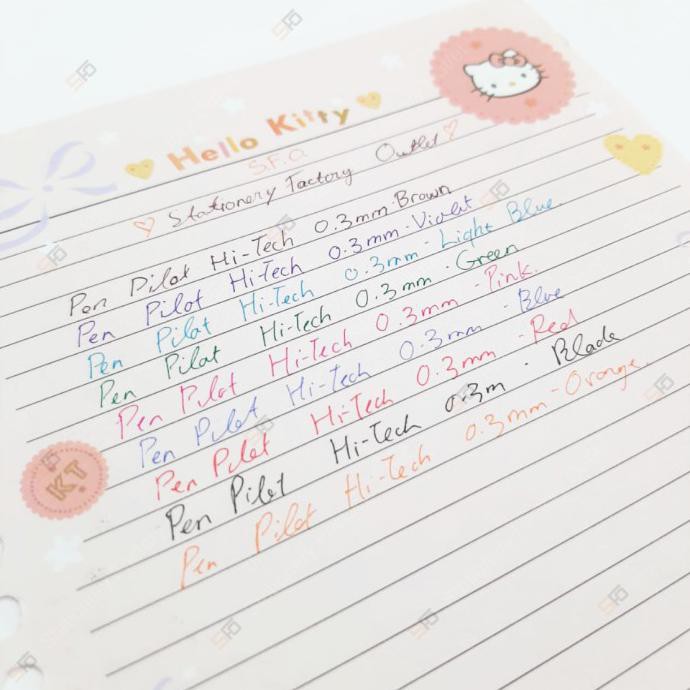 Hello Kitty
S.F.O
Stationery Factory Outlet
Pen Pilot Hi-Tech 0.3mm-Brown
Pen Pilot Hi-Tech 0.3mm-Violet
Pen Pilot Hi-Tech 0.3mm-Light Blue
Pen Pilot Hi-Tech 0.3mm-Green
Pen Pilot Hi-Tech 0.3mm-Pink.
Pen Pilot Hi-Tech 0.3mm-Blue
Pen Pilot Hi-Tech 0.3mm-Red
Pen Pilot Hi-Tech 0.3m-Blade
Pen Pilot Hi-Tech 0.3mm-Orange.
KT
SFO